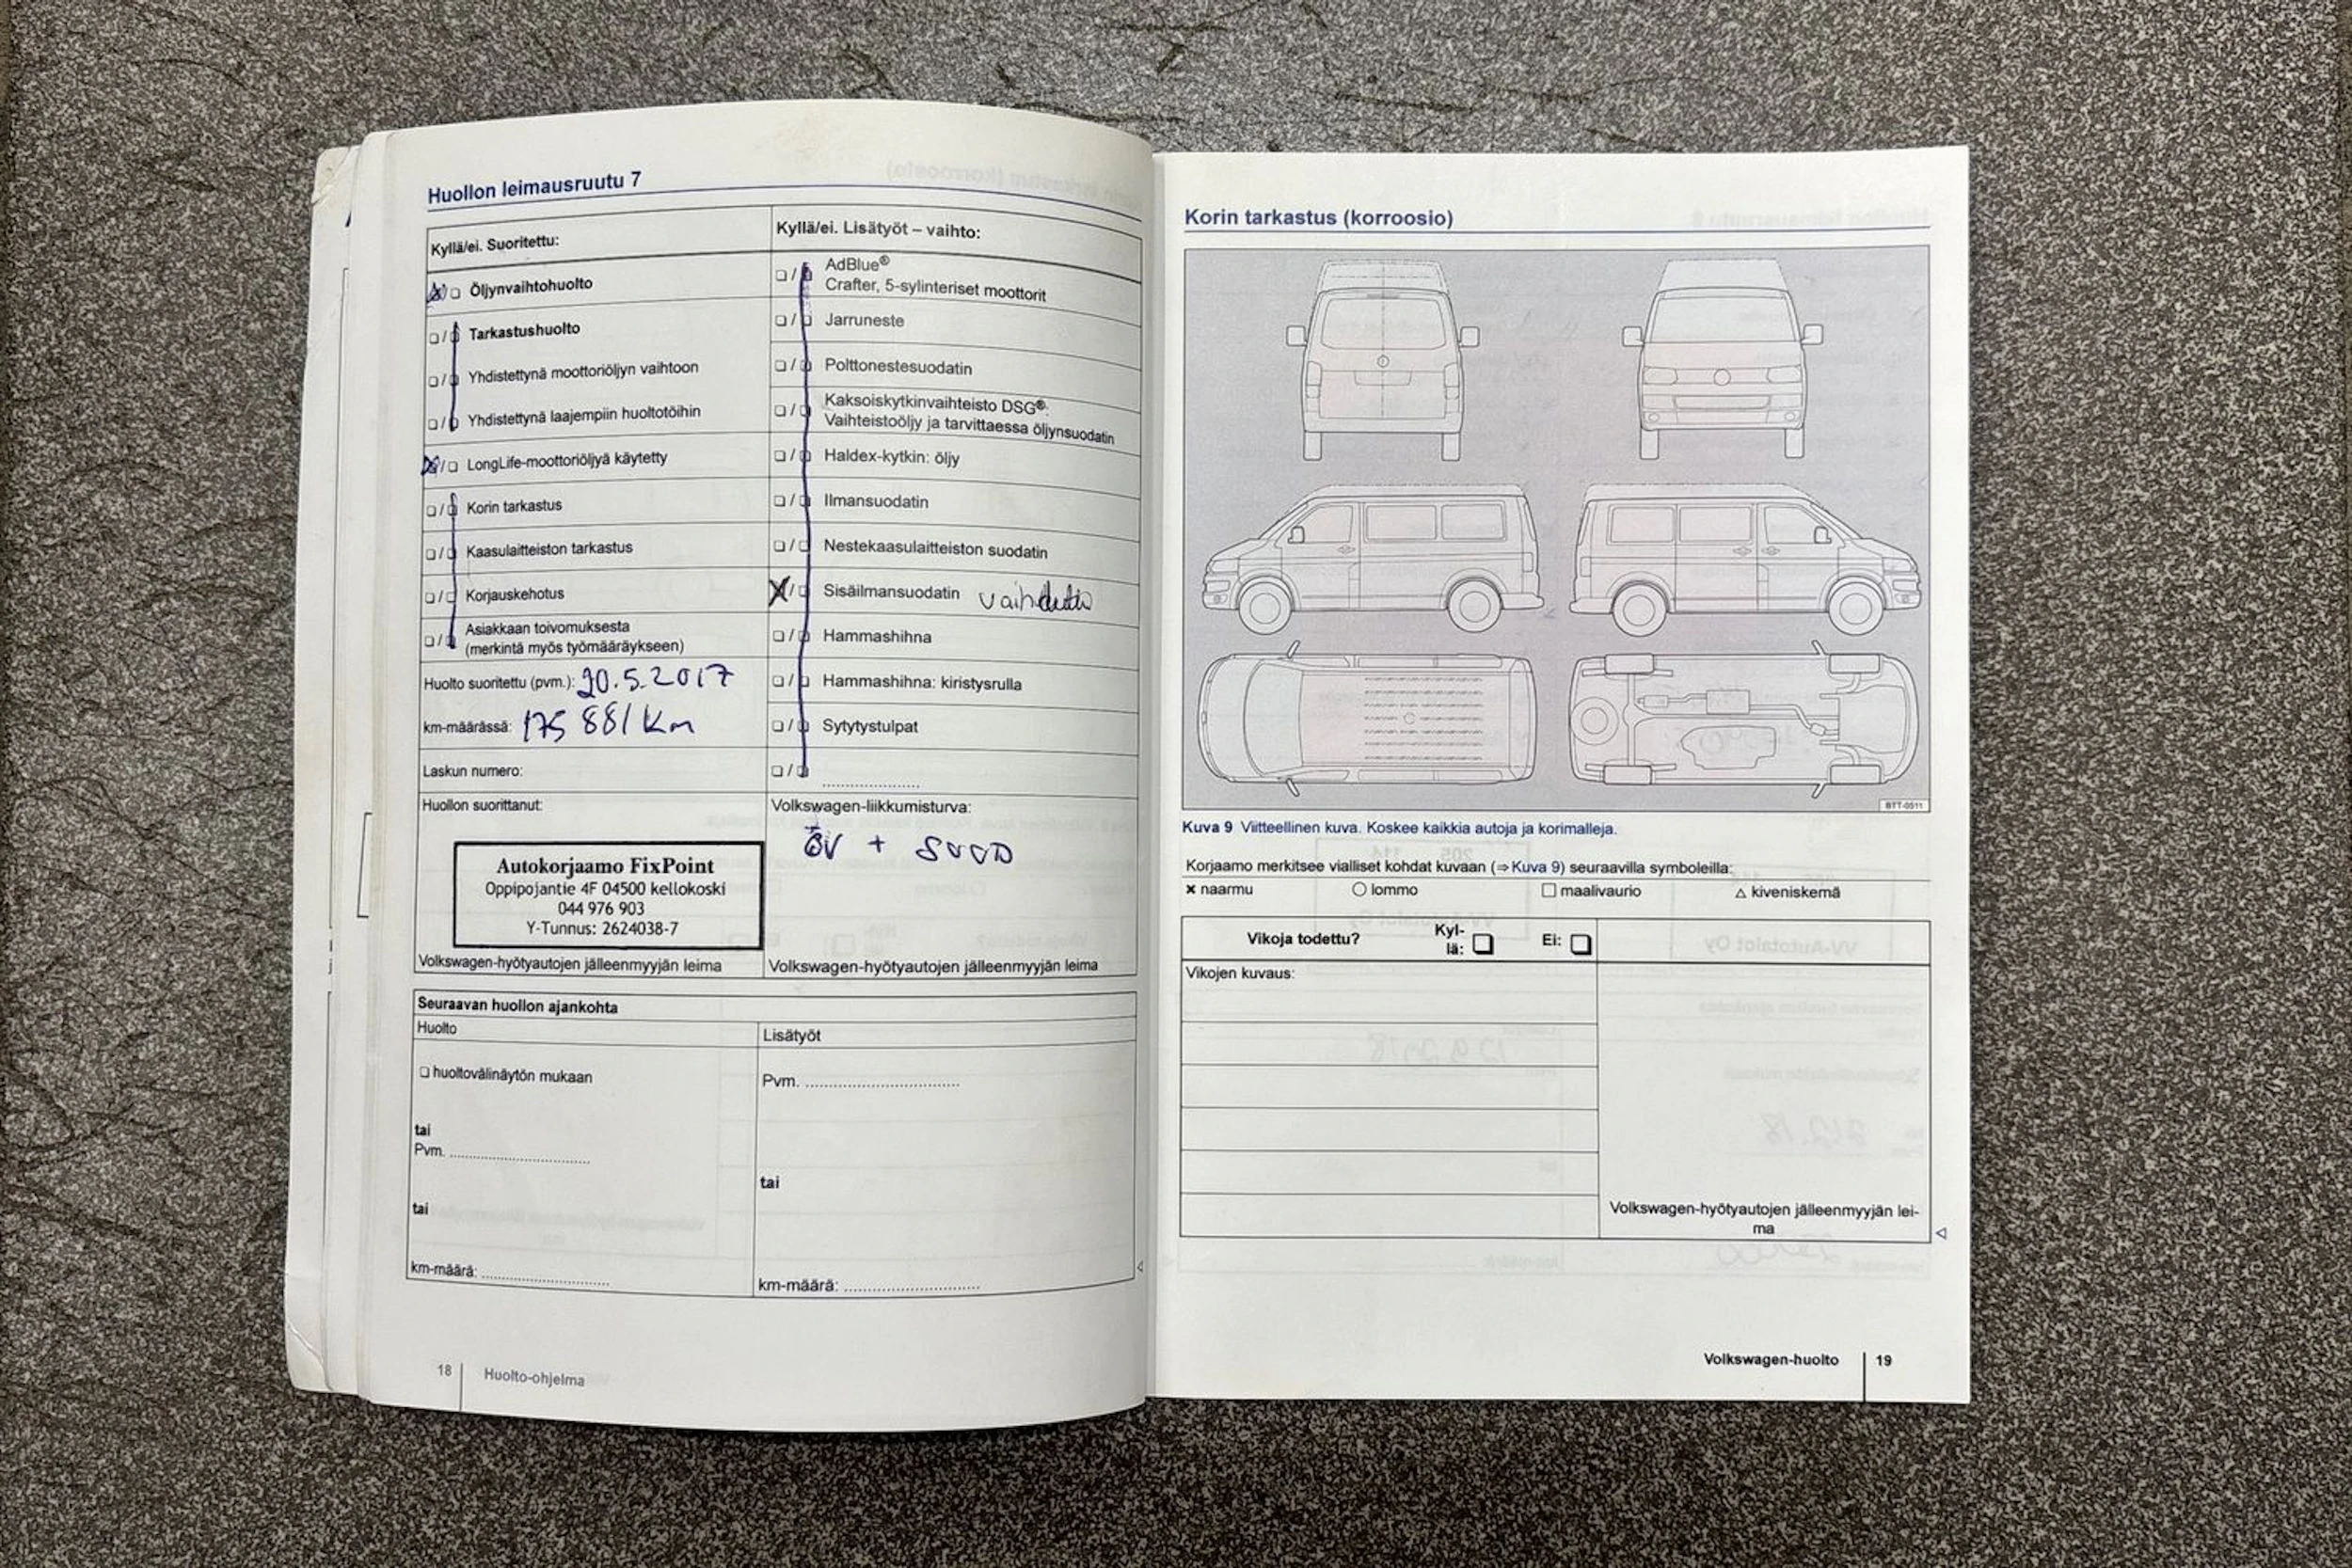 Huollon leimausruutu 7
Kyllä/ei. Suoritettu:
Öljynvaihtohuolto
Tarkastushuolto
Yhdistettynä moottoriöljyn vaihtoon
Yhdistettynä laajempiin huoltotöihin
LongLife-moottoriöljyä käytetty
Korin tarkastus
Kaasulaitteiston tarkastus
Korjauskehotus
Asiakkaan toivomuksesta
(merkintä myös työmääräykseen)
Huolto suoritettu (pvm.): 20.5.2017
km-määrässä: 175 881 km
Laskun numero:
Huollon suorittanut:
Autokorjaamo FixPoint
Oppipojantie 4F 04500 kellokoski
044 976 903
Y-Tunnus: 2624038-7
Volkswagen-hyötyautojen jälleenmyyjän leima
Kyllä/ei. Lisätyöt – vaihto:
AdBlue®
Crafter, 5-sylinteriset moottorit
Jarruneste
Polttonestesuodatin
Kaksoiskytkinvaihteisto DSG®:
Vaihteistoöljy ja tarvittaessa öljynsuodatin
Haldex-kytkin: öljy
Ilmansuodatin
Nestekaasulaitteiston suodatin
Sisäilmansuodatin vaihdettu
Hammashihna
Hammashihna: kiristysrulla
Sytytystulpat
Volkswagen-liikkumisturva:
ÖV + SUOD
Volkswagen-hyötyautojen jälleenmyyjän leima
Seuraavan huollon ajankohta
Huolto
huoltovälinäytön mukaan
tai
Pvm.
tai
km-määrä:
Lisätyöt
Pvm.
tai
km-määrä:
18 Huolto-ohjelma
Korin tarkastus (korroosio)
BTT-0511
Kuva 9 Viitteellinen kuva. Koskee kaikkia autoja ja korimalleja.
Korjaamo merkitsee vialliset kohdat kuvaan (⇒ Kuva 9) seuraavilla symboleilla:
× naarmu ○ lommo □ maalivaurio △ kiveniskemä
Vikoja todettu? Kyl-
lä: Ei:
Vikojen kuvaus:
Volkswagen-hyötyautojen jälleenmyyjän lei-
ma
Volkswagen-huolto 19